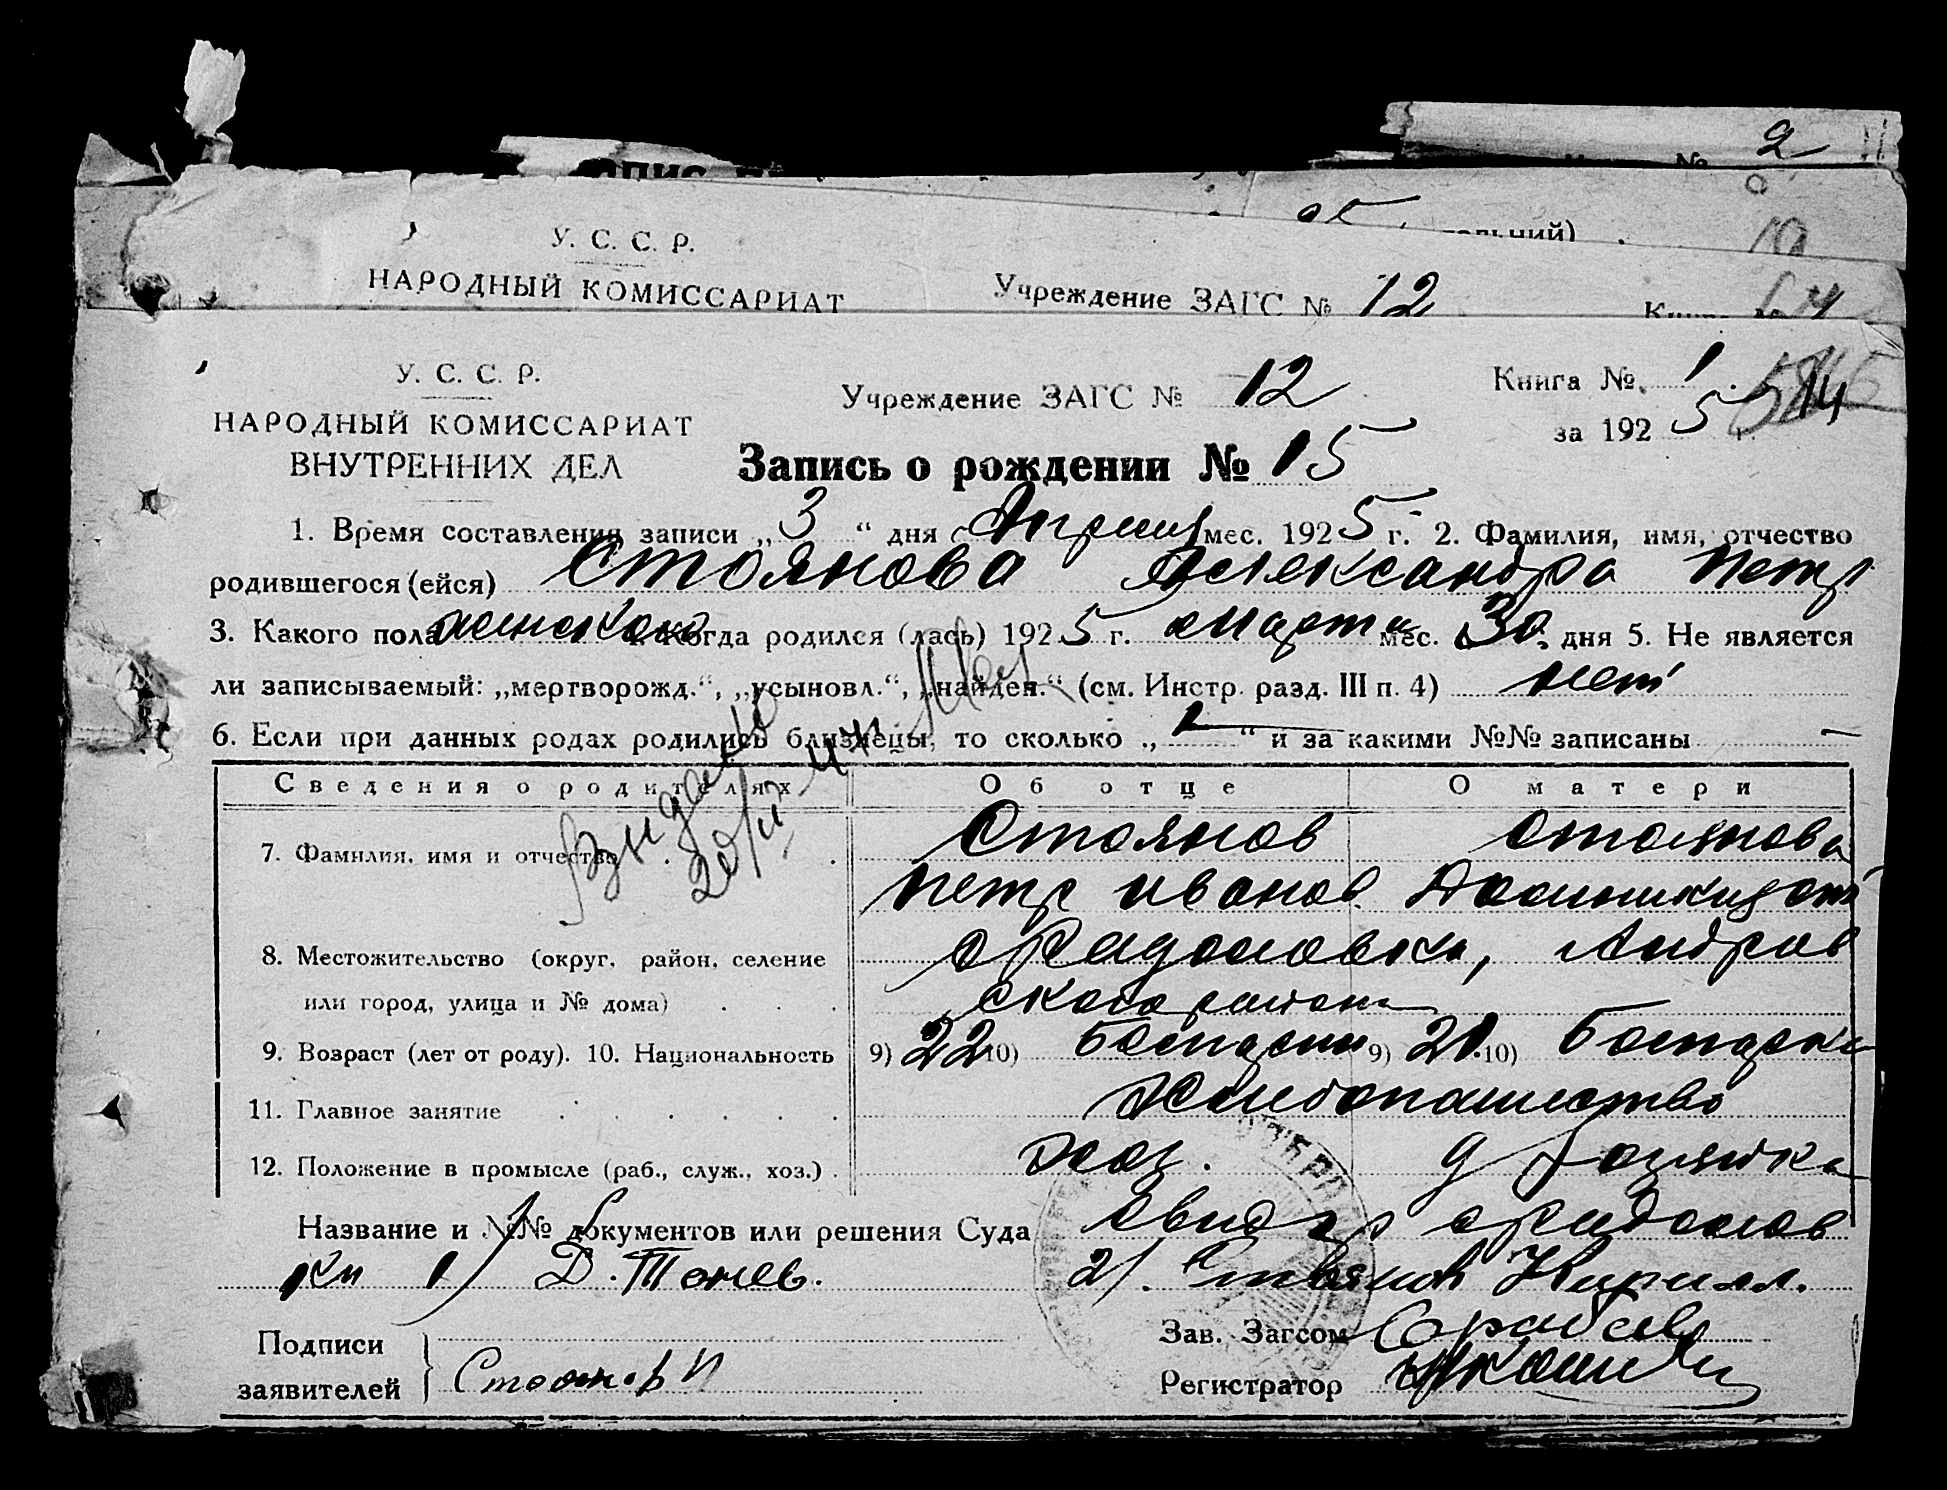 2
У. С. С. Р.
НАРОДНЫЙ КОМИССАРИАТ
Учреждение ЗАГС № 12
У. С. С. Р.
НАРОДНЫЙ КОМИССАРИАТ
ВНУТРЕННИХ ДЕЛ
Учреждение ЗАГС № 12
Книга № 1
за 1925 г.
14
Запись о рождении № 15
1. Время составления записи „3“ дня Апреля мес. 1925 г. 2. Фамилия, имя, отчество
родившегося (ейся) Стоянова Александра Петр
3. Какого пола женского 4. Когда родился (лась) 1925 г. Марта мес. 30 дня 5. Не является
ли записываемый: „мертворожд.“, „усыновл.“, „найден.“ (см. Инстр. разд. III п. 4) нет
6. Если при данных родах родились близнецы, то сколько „ “ и за какими №№ записаны —
Сведения о родителях Об отце О матери
7. Фамилия, имя и отчество Стоянов Стоянова
Петр Иванов
8. Местожительство (округ, район, селение
или город, улица и № дома) ского района
9. Возраст (лет от роду). 10. Национальность 9) 22 10) Болгарин 9) 21 10) Болгарка
11. Главное занятие Хлебопашество
12. Положение в промысле (раб., служ., хоз.) хоз.
Выдано
Название и №№ документов или решения Суда
ки 1) Д. Тонев. 2) Стоянов Кирилл.
Подписи
заявителей
Стоянов П
Зав. Загсом
Регистратор